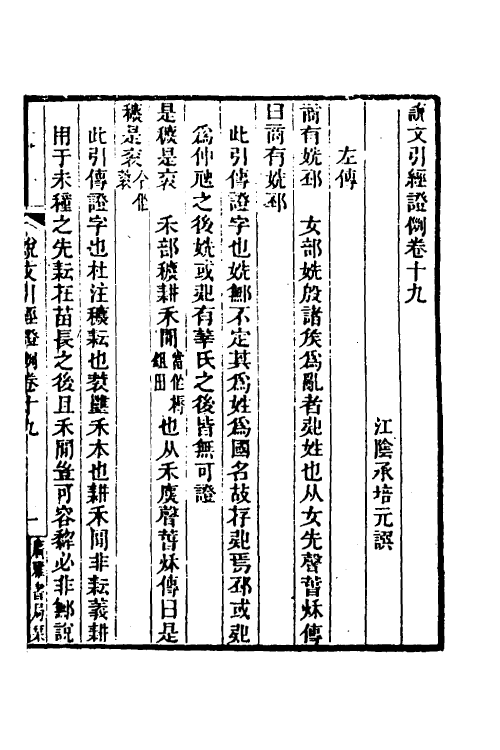 說文引經證例卷十九
江陰承培元譔
左傳
商有姺邳　女部姺殷諸矦爲亂者㚲姓也从女先聲春秋傳
曰商有姺邳
此引傳證字也姺鄦不定其爲姓爲國名故存㚲焉邳或㚲
爲仲虺之後姺或㚲有莘氏之後皆無可證
是穮是袞　禾部穮耕禾閒當作槈鉏田也从禾麃聲春秋傳曰是
穮是袞今作蓘
此引傳證字也杜注穮耘也蓘壅禾本也耕禾閒非耘義耕
用于未種之先耘在苗長之後且禾閒豈可容犂必非鄦說
說文引經證例卷十九
一
廣雅書局栞